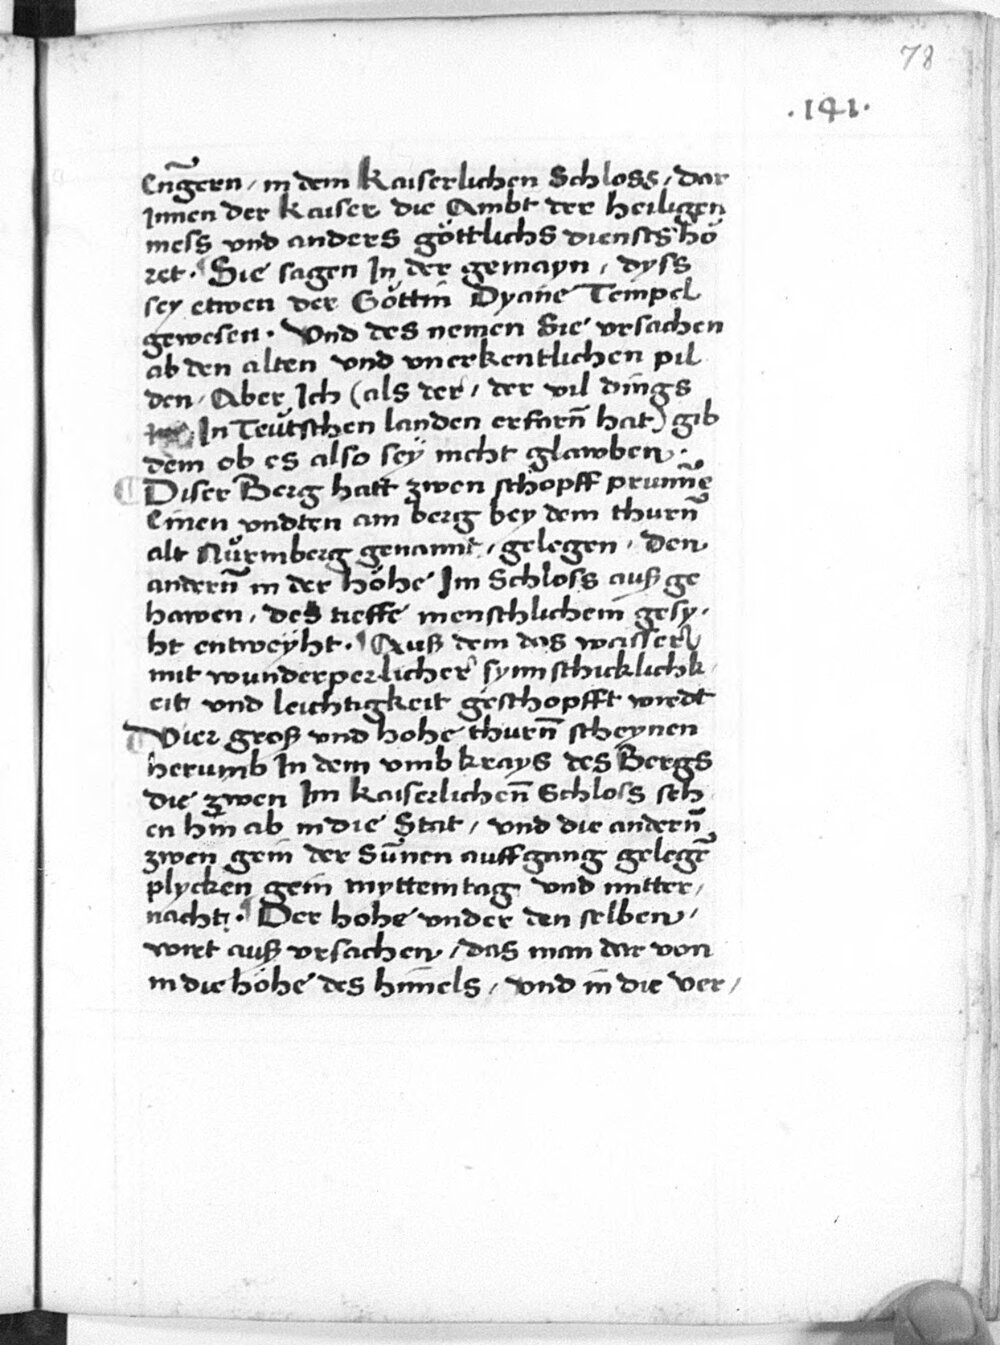 78
.141.
Engern̄ / in dem Kaiserlichen Schloss / dar
Innen der Kaiser die Ambt der heiligen
mess vnd anders göttlichs diensts hö
ret. Sie sagen In der gemayn / dyss
sey etwen der Göttin Dyane Tempel
gewesen. Vnd des nemen Sie vrsachen
ab den alten vnd vnerkentlichen pil
den / Aber Ich (als der / der vil dings
In Teütschen landen erfarn̄ hat) gib
dem ob es also sey nicht glawben.
¶ Diser Berg hatt zwen schöpff prunnē
Einen vndten am berg bey dem thurn̄
alt Nürmberg genannt / gelegen / Den
andern̄ in der höhe Im Schloss auß ge
hawen / des tieffe menschlichem gesy /
ht entweyht. ¶ Auß dem das wasser
mit wunderperlicher synn schicklichk
eit vnd leichtigkeit geschopfft wirdt
¶ Vier groß vnd hohe thurn̄ scheynen
herumb In dem vmbkrays des Bergs
die zwen Im kaiserlichen̄ Schloss seh
en hin ab in die Stat / vnd die andern̄
zwen gein der Sunnen auffgang gelegē
plycken gein myttemtag vnd mitter /
nacht. ¶ Der hohe vnder den selben /
wirt auß vrsachen / das man dar von
in die höhe des himels / vnd in die ver /